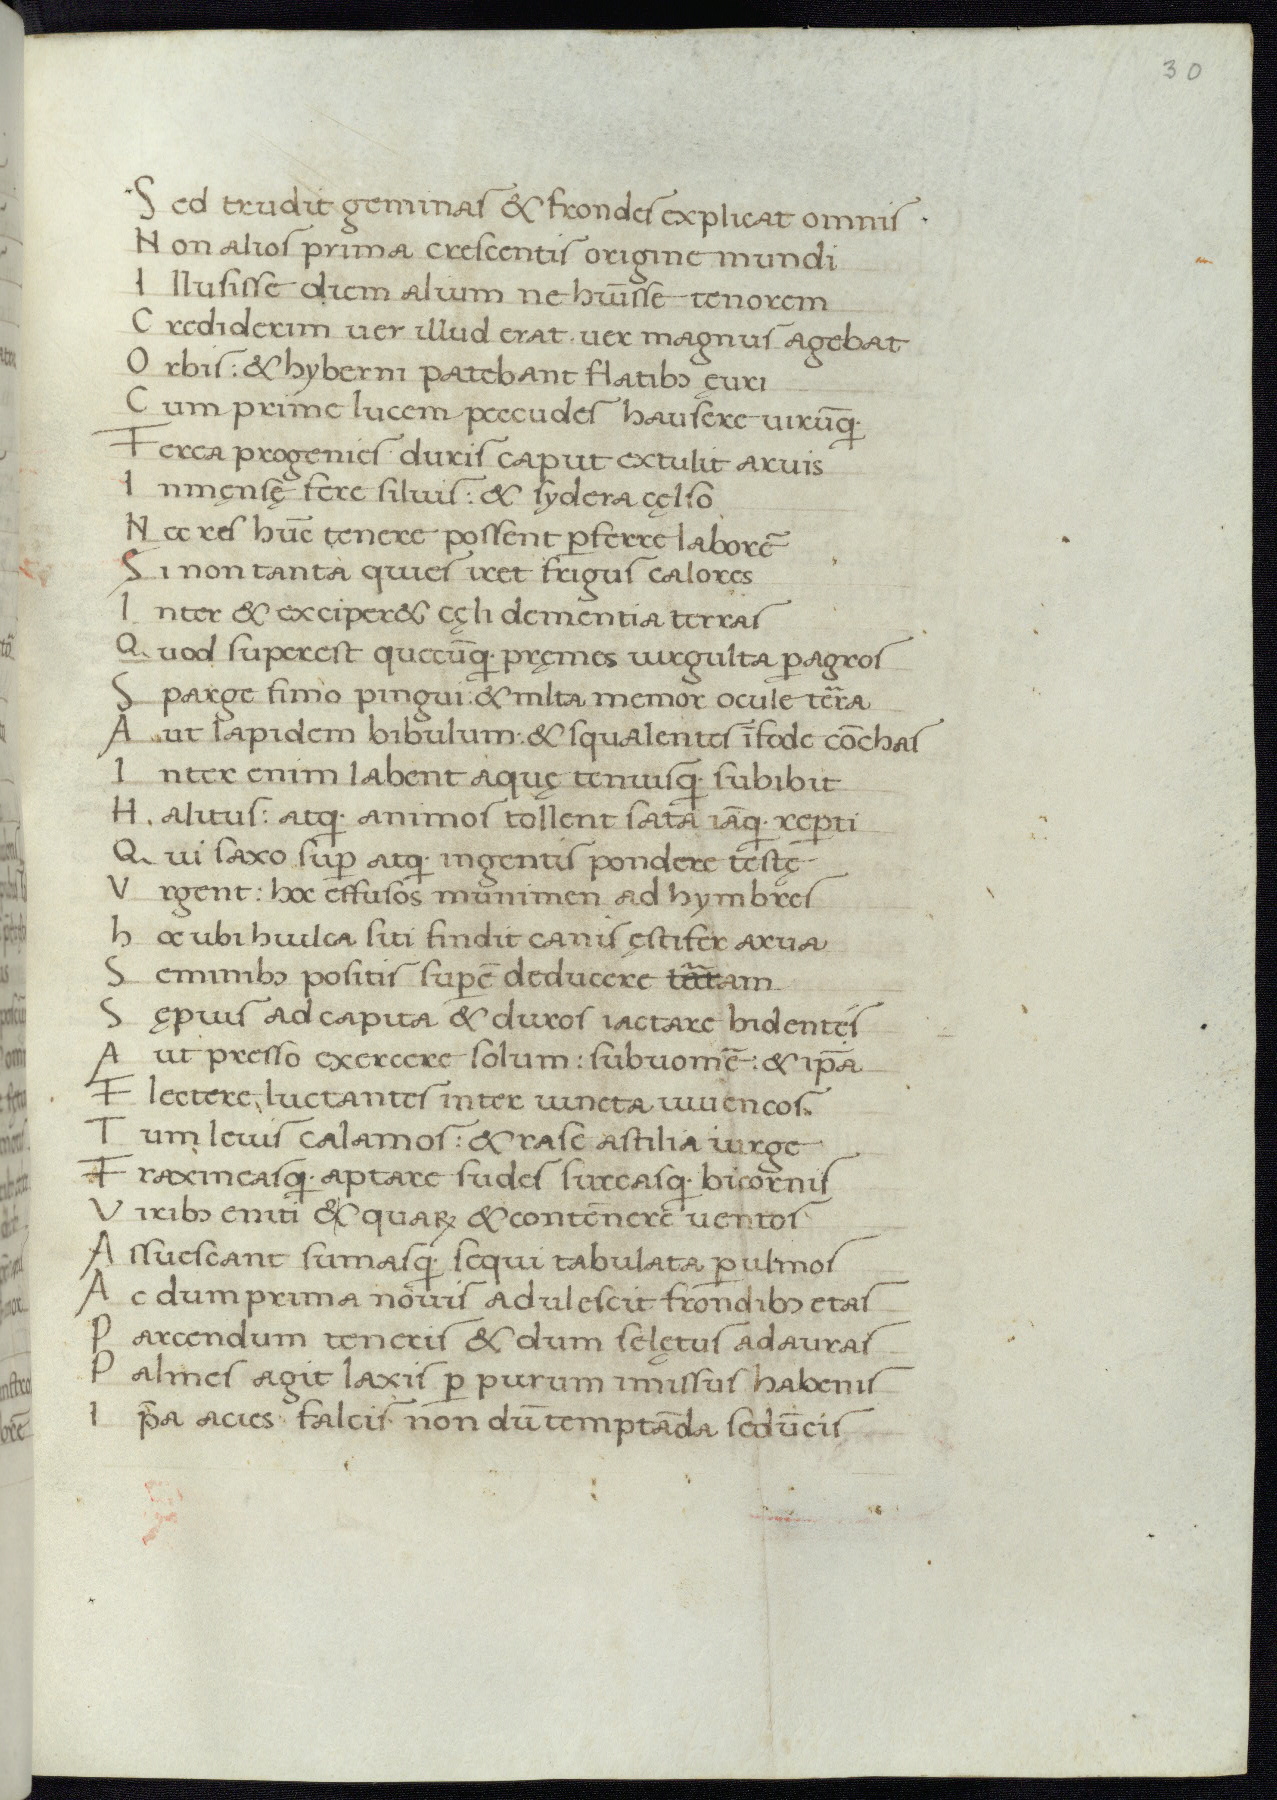 30
Sed trudit geminas & frondes explicat omnis
Non alios prima crescentis origine mundi
Illusisse diem alium ne hūisse tenorem
Crediderim uer illud erat. uer magnus agebat
Orbis: & hyberni patebant flatibꝫ ęuri
Cum prime lucem peecudes hausere uirūq̨.
Ferea progenies duris caput extulit aruis
Inmęnsę fere siluis: & sydera cęlso
Nec res hūc tenere possent ꝑferre laborē
Si non tanta quies iret frigus calores
Inter & exciper& cęli dementia terras
Quod superest quecūq̨. pręmes uirgulta ꝑ agros
Sparge fimo pingui. & mlta memor ocule tēra
Aut lapidem bibulum: & squalentes īfode cōchas
Inter enim labent aquę tenuisq̨. subibit
Halitus: atq̨. animos tollent sata iāq̨. reꝑti
Qui saxo suꝑ atq̨. ingentis pondere testę
Vrgent: hoc effusos munimen ad hymbres
hoc ubi hiulca siti findit canis ęstifer arua
Seminibꝫ positis suꝑē deducere tētam
Sępius ad capita & duros iactare bidentes
Aut presso exercere solum: sub uomē: & ip̄a
Flectere luctantes inter uineta iuuencos.
Tum leuis calamos: & rase astilia uirge
Fraxineasq̨. aptare sudes surcasq̨. bicornis
Viribꝫ eniti & quaꝝ & contēnere uentos
Assuescant sumasq̨. sequi tabulata ꝑ ulmos
Ac dum prima nouis adulescit frondibꝫ etas
Parcendum teneris & dum selętus ad auras
Palmes agit laxis ꝑ purum imissus habenis
Ip̄a acies falcis non dū temptāda sedūcis